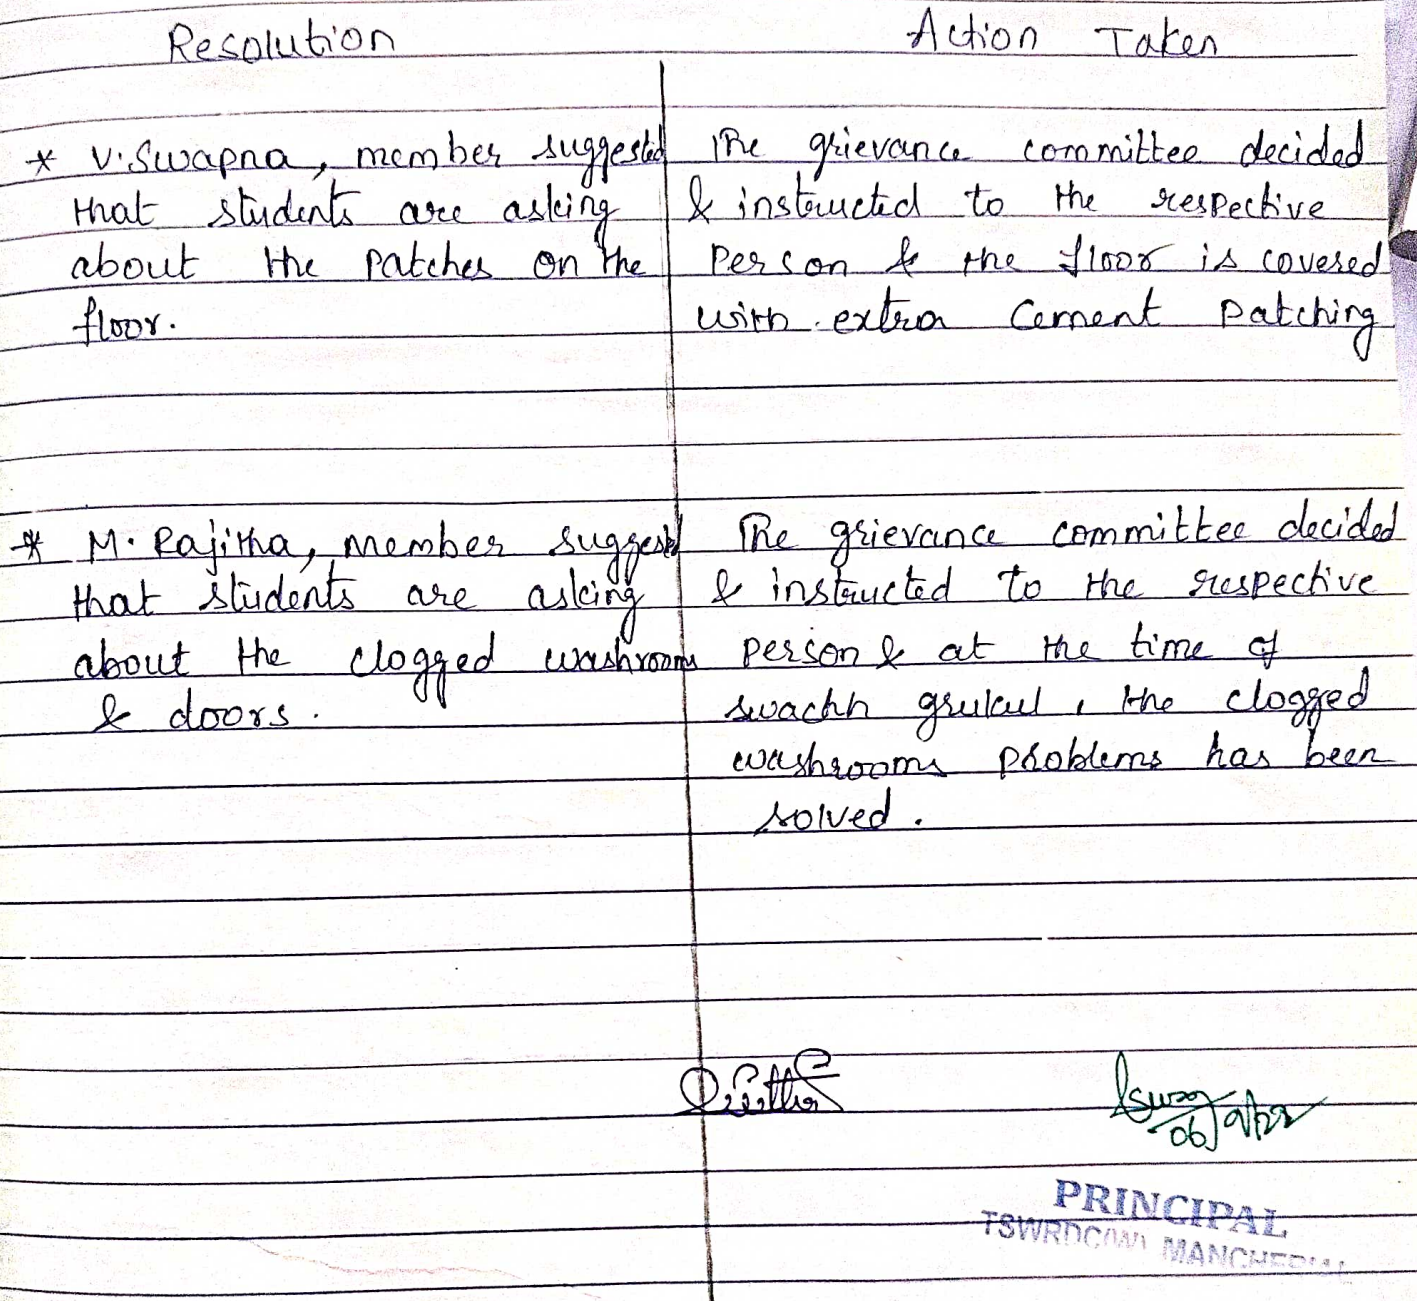 Resolution
Action Taken
* V. Swapna, member suggested
that students are asking
about the patches on the
floor.
The grievance committee decided
& instructed to the respective
person & the floor is covered
with extra cement patching
* M. Rajitha, member suggested
that students are asking
about the clogged washrooms
& doors.
The grievance committee decided
& instructed to the respective
person & at the time of
swachh grukul, the clogged
washrooms problems has been
solved.
06/9/22
PRINCIPAL
TSWRDC(W) MANCHERIAL